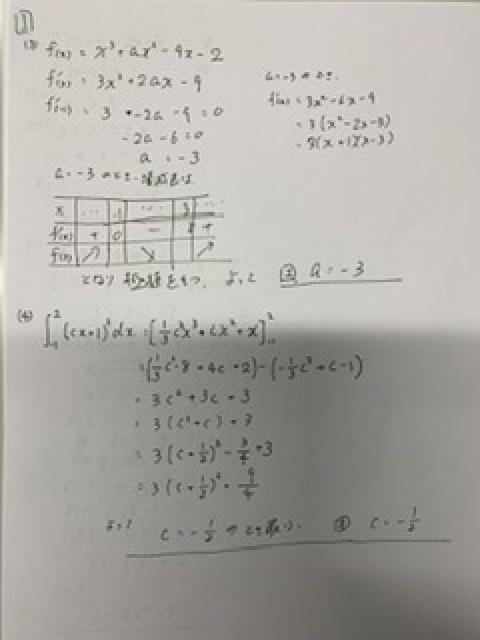 1
(3) f(x) = x³ + ax² - 9x - 2
f'(x) = 3x² + 2ax - 9
f'(-1) = 3 - 2a - 9 = 0
-2a - 6 = 0
a = -3
a = -3 のとき
x ... -1 ... 3 ...
f'(x) + 0 - 0 +
f(x) ↗ ↘ ↗
a = -3 のとき
f'(x) = 3x² - 6x - 9
= 3(x² - 2x - 3)
= 3(x + 1)(x - 3)
となり 極大値をもつ. よって 答 a = -3
(4) ∫₋₁² (cx+1)² dx = [⅓c²x³ + cx² + x]₋₁²
= (⅓c²·8 + 4c + 2) - (-⅓c² + c - 1)
= 3c² + 3c + 3
= 3(c² + c) + 3
= 3(c + ½)² - ¾ + 3
= 3(c + ½)² + 9/4
よって c = -½ のとき 最小. 答 c = -½